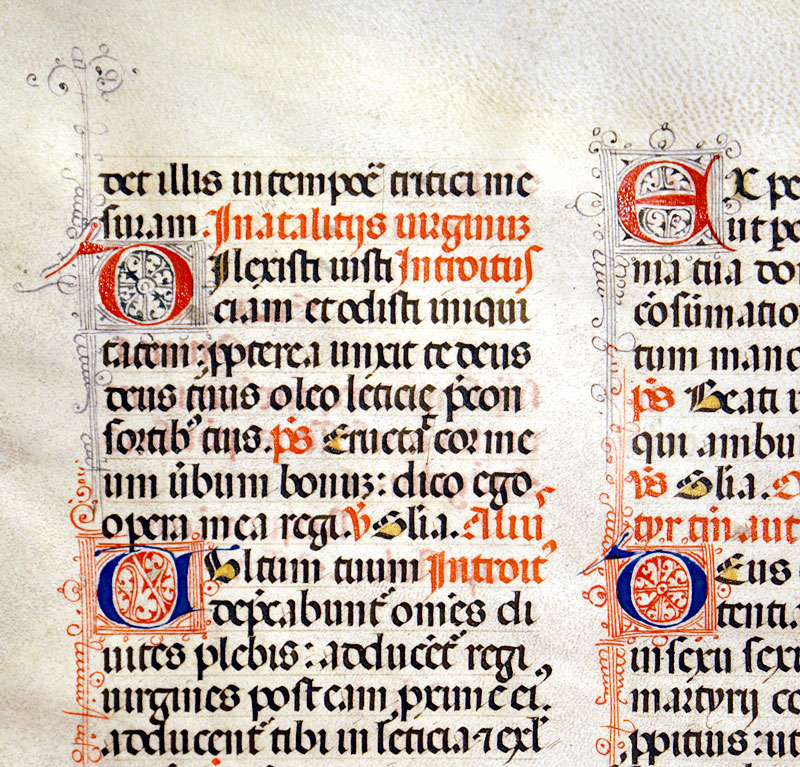 det illis in tempore tritici me
suram. In natalitijs uirginuz
Dilexisti iusti Introitus
ciam et odisti iniqui
tatem: ꝓpterea unxit te deus
deus tuus oleo leticie p̄con
sortibꝰ tuis. p̄s Eructāt cor me
um ūbum bonuz: dico ego
opera mea regi. V̄ Glia. Aliuī
Vultum tuum Introit
dep̄cabunt᷑ om̄es di
uites plebis: adducēt᷑ regi
uirgines post eam, proxime ei.
adducent᷑ tibi in leticia ⁊ exl
EX pe
aut pe
ma tua do
cōsūmatio
tum man
p̄s Beati
qui ambu
V̄s Glia.
tyr tin aut
DEus
tenti
in sexu sex
martyrij co
ꝓpitius: ut